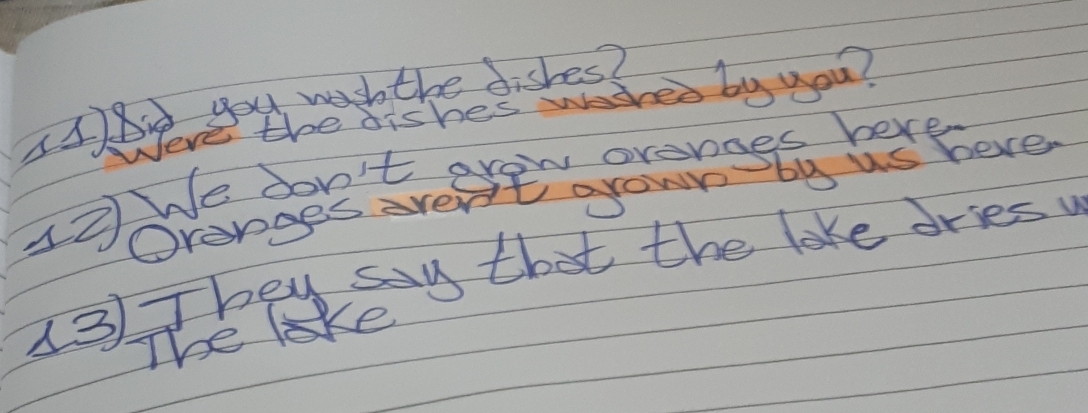 11) Did you wash the dishes?
Were the dishes washed by you?
12) We don't grow oranges here.
Oranges aren't grown by us here.
13) They say that the lake dries
The lake